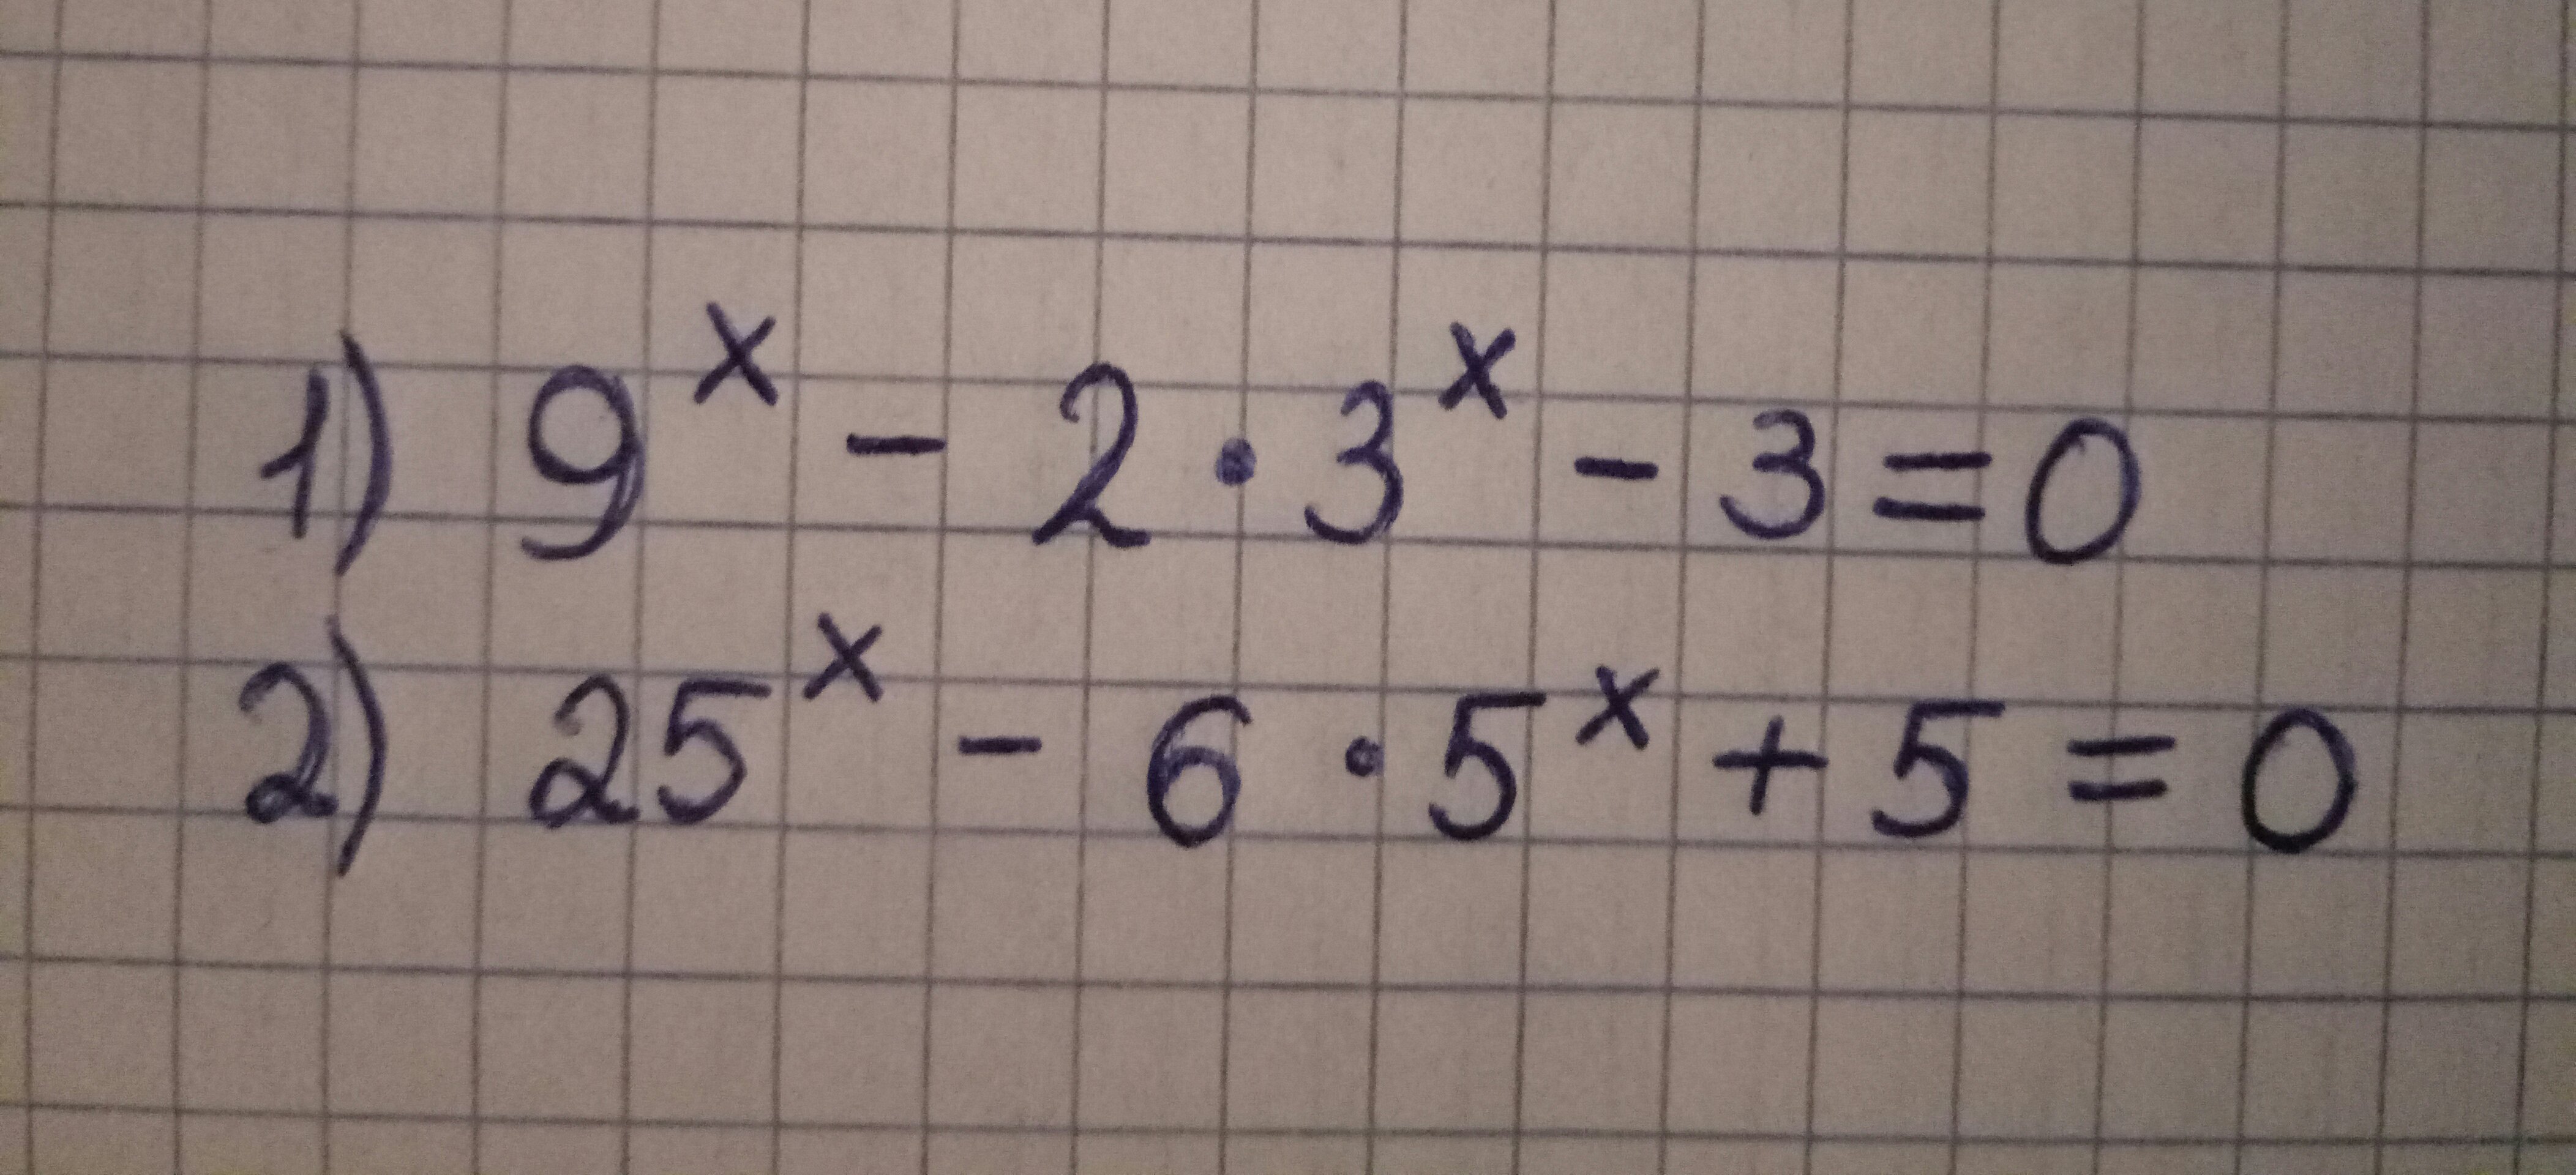 1) 9^x - 2 · 3^x - 3 = 0
2) 25^x - 6 · 5^x + 5 = 0